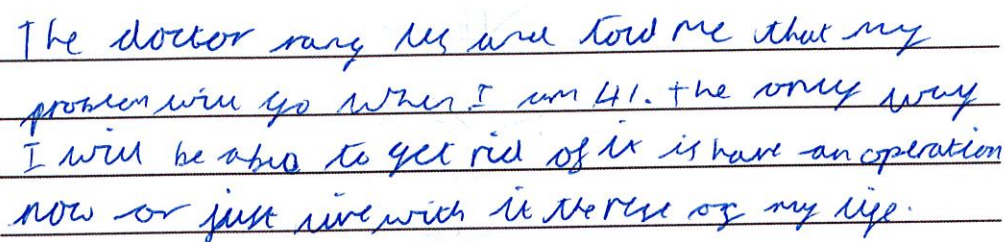 The doctor rang us and told me that my
problem will go when I am 41. the only way
I will be able to get rid of it is have an operation
now or just live with it the rest of my life.